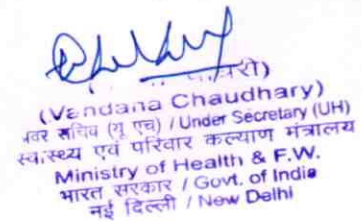 (Vandana Chaudhary)
अवर सचिव (यू एच) / Under Secretary (UH)
स्वास्थ्य एवं परिवार कल्याण मंत्रालय
Ministry of Health & F.W.
भारत सरकार / Govt. of India
नई दिल्ली / New Delhi